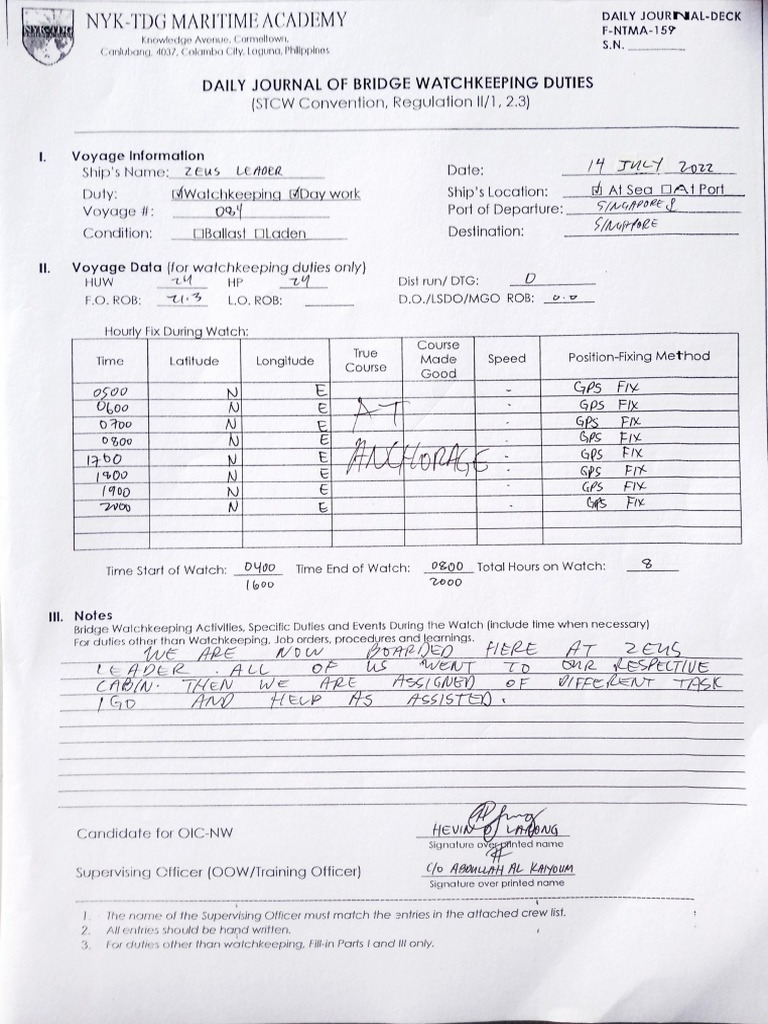 NYK-TDG MARITIME ACADEMY
Knowledge Avenue, Carmeltown,
Canlubang, 4037, Calamba City, Laguna, Philippines
DAILY JOURNAL-DECK
F-NTMA-159
S.N.
NYK-TDG
DAILY JOURNAL OF BRIDGE WATCHKEEPING DUTIES
(STCW Convention, Regulation II/1, 2.3)
I. Voyage Information
Ship's Name: ZEUS LEADER Date: 14 JULY 2022
Duty: ☑Watchkeeping ☑Day work Ship's Location: ☑ At Sea ☐At Port
Voyage #: 084 Port of Departure: SINGAPORE
Condition: ☐Ballast ☐Laden Destination: SINGAPORE
II. Voyage Data (for watchkeeping duties only)
HUW 24 HP 24 Dist run/ DTG: 0
F.O. ROB: 21.3 L.O. ROB: D.O./LSDO/MGO ROB: 0.0
Hourly Fix During Watch:
Time Latitude Longitude True Course Course Made Good Speed Position-Fixing Method
0500 N E - GPS FIX
0600 N E - GPS FIX
0700 N E - GPS FIX
0800 N E - GPS FIX
1700 N E - GPS FIX
1800 N E - GPS FIX
1900 N E - GPS FIX
2000 N E - GPS FIX
AT
ANCHORAGE
Time Start of Watch: 0400 Time End of Watch: 0800 Total Hours on Watch: 8
1600 2000
III. Notes
Bridge Watchkeeping Activities, Specific Duties and Events During the Watch (include time when necessary)
For duties other than Watchkeeping, Job orders, procedures and learnings.
WE ARE NOW BOARDED HERE AT ZEUS
LEADER. ALL OF US WENT TO OUR RESPECTIVE
CABIN. THEN WE ARE ASSIGNED OF DIFFERENT TASK
I GO AND HELP AS ASSISTED.
Candidate for OIC-NW
Signature over printed name
Supervising Officer (OOW/Training Officer) C/O ABDULLAH AL KAIYOUM
Signature over printed name
1. The name of the Supervising Officer must match the entries in the attached crew list.
2. All entries should be hand written.
3. For duties other than watchkeeping, Fill-in Parts I and III only.